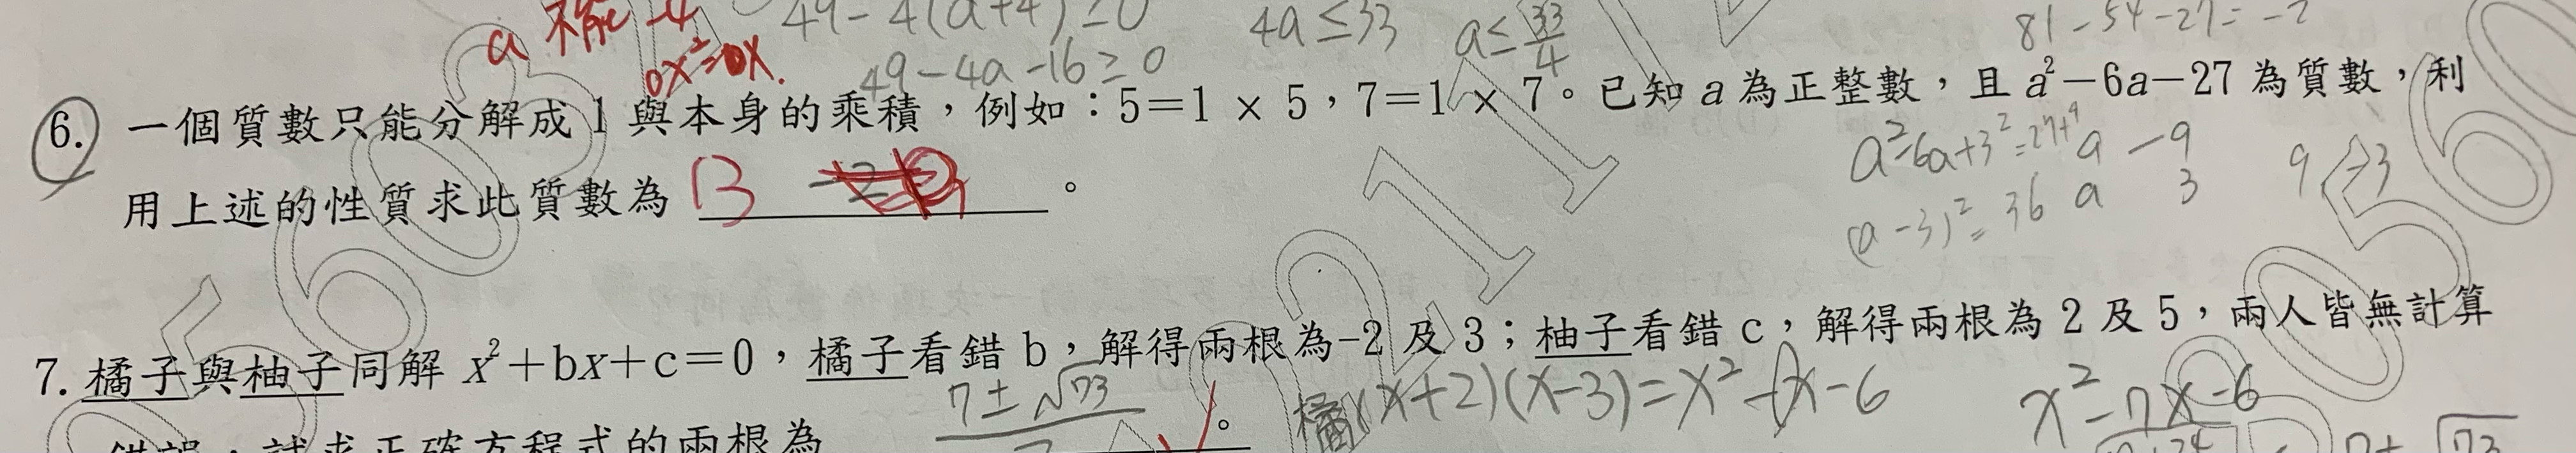 a 不能 -4
49-4(a+4)≥0
4a≤33
a≤33/4
81-54-27=-2
0x²=0x.
49-4a-16≥0
6. 一個質數只能分解成 1 與本身的乘積，例如：5=1 × 5，7=1 × 7。已知 a 為正整數，且 a²-6a-27 為質數，利
a²-6a+3²=27+9
a -9
a 3
9 -3
用上述的性質求此質數為 13 。
(a-3)²=36
7. 橘子與柚子同解 x²+bx+c=0，橘子看錯 b，解得兩根為-2 及 3；柚子看錯 c，解得兩根為 2 及 5，兩人皆無計算
7±√73
橘(x+2)(x-3)=x²-x-6
x²-7x-6
錯誤，試求正確方程式的兩根為 。